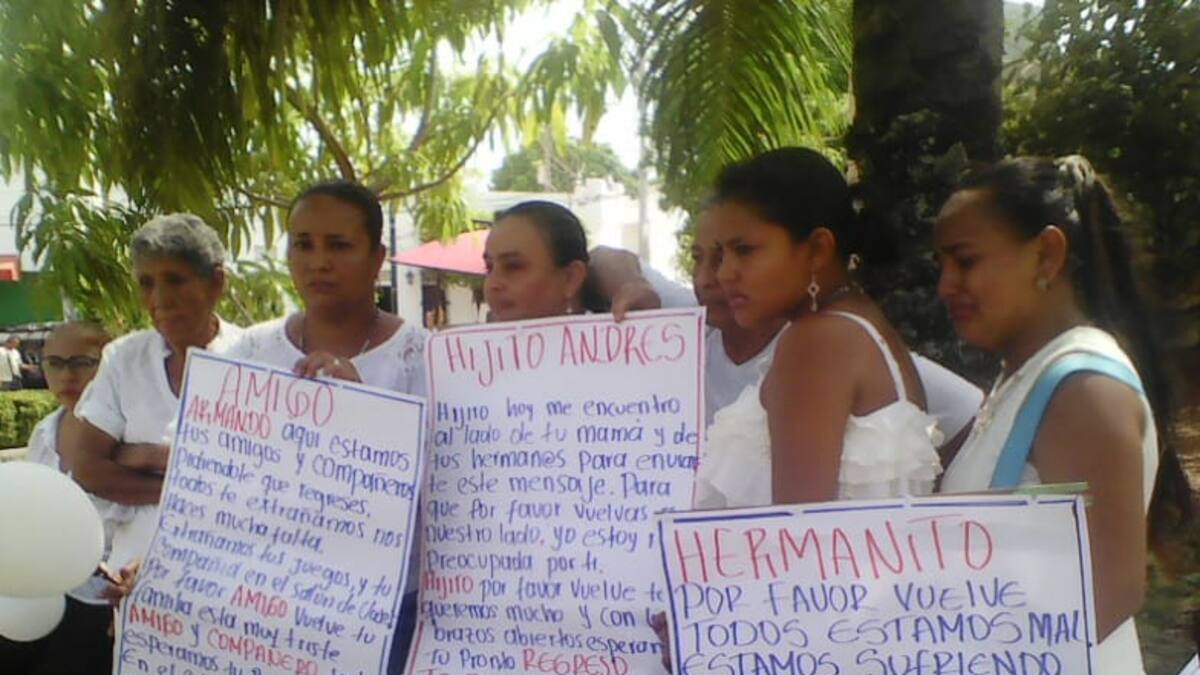 AMIGO
ARMANDO aquí estamos
tus amigos y compañeros
todos te extrañamos nos
haces mucha falta.
Extrañamos tus juegos, y tu
compañia en el salon de clase
Por favor AMIGO vuelve tu
familia esta muy triste
AMIGO y COMPAÑERO
esperamos tu
En el
HIJITO ANDRES
Hijito hoy me encuentro
al lado de tu mamá y de
tus hermanos para enviar
te este mensaje. Para
que por favor vuelvas
nuestro lado, yo estoy
Preocupada por ti.
Hijito por favor vuelve te
queremos mucho y con lo
brazos abiertos esperan
Tu Pronto REGRESO
HERMANITO
POR FAVOR VUELVE
TODOS ESTAMOS MAL
ESTAMOS SUFRIENDO